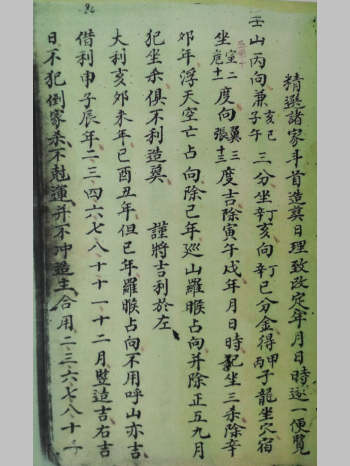 精選諸家斗首造葬日理致改定年月日時逐一便覽
壬山丙向兼亥巳子午三分坐辛丁亥向辛丁巳分金得甲丙子龍坐穴宿
坐室二危十度向翼三張十三度吉除寅午戌年月日時犯坐三杀除辛
卯年浮天空亡占向除己年巡山羅睺占向并除正五九月
犯坐杀俱不利造葬 謹將吉利於左
大利亥卯未年巳酉丑年但巳年羅睺占向不用呼山亦吉
借利申子辰年二三四六七八十十一十二月豎造吉右吉
日不犯倒家杀不尅運并不冲造主合用二三六七八十十一